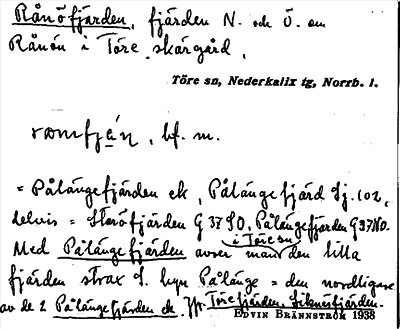 Rånöfjärden, fjärden N. och Ö. om
Rånön i Töre skärgård.
Töre sn, Nederkalix tg, Norrb. l.
bf. m.
= Pålängefjärden ek, Pålängefjärd Sj. 102,
delvis = Storöfjärden G 37 SO, Pålängefjärden G 37 NO.
i Töre sn
Med Pålängefjärden avser man den lilla
fjärden strax S. byn Pålänge = den nordligare
av de 2 Pålängefjärden ek. Jfr Törefjärden, Siknäsfjärden.
EDVIN BRÄNNSTRÖM 1938